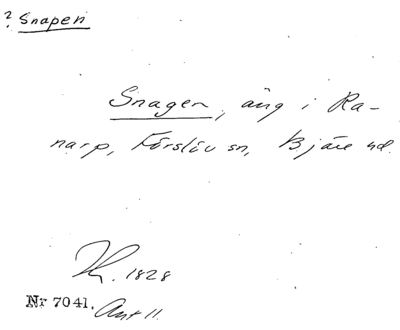 ? Snapen
Snagen, äng i Ra-
narp, Förslöv sn, Bjäre hd.
1828
Nr 7041. Ant 11.